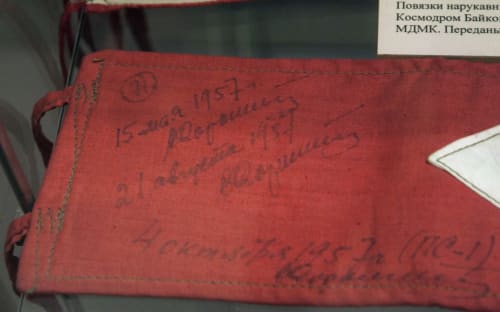 Повязки нарукавн
Космодром Байко
МДМК. Переданы
15 мая 1957 г
21 августа 1957
4 октября 1957 г (ПС-1)